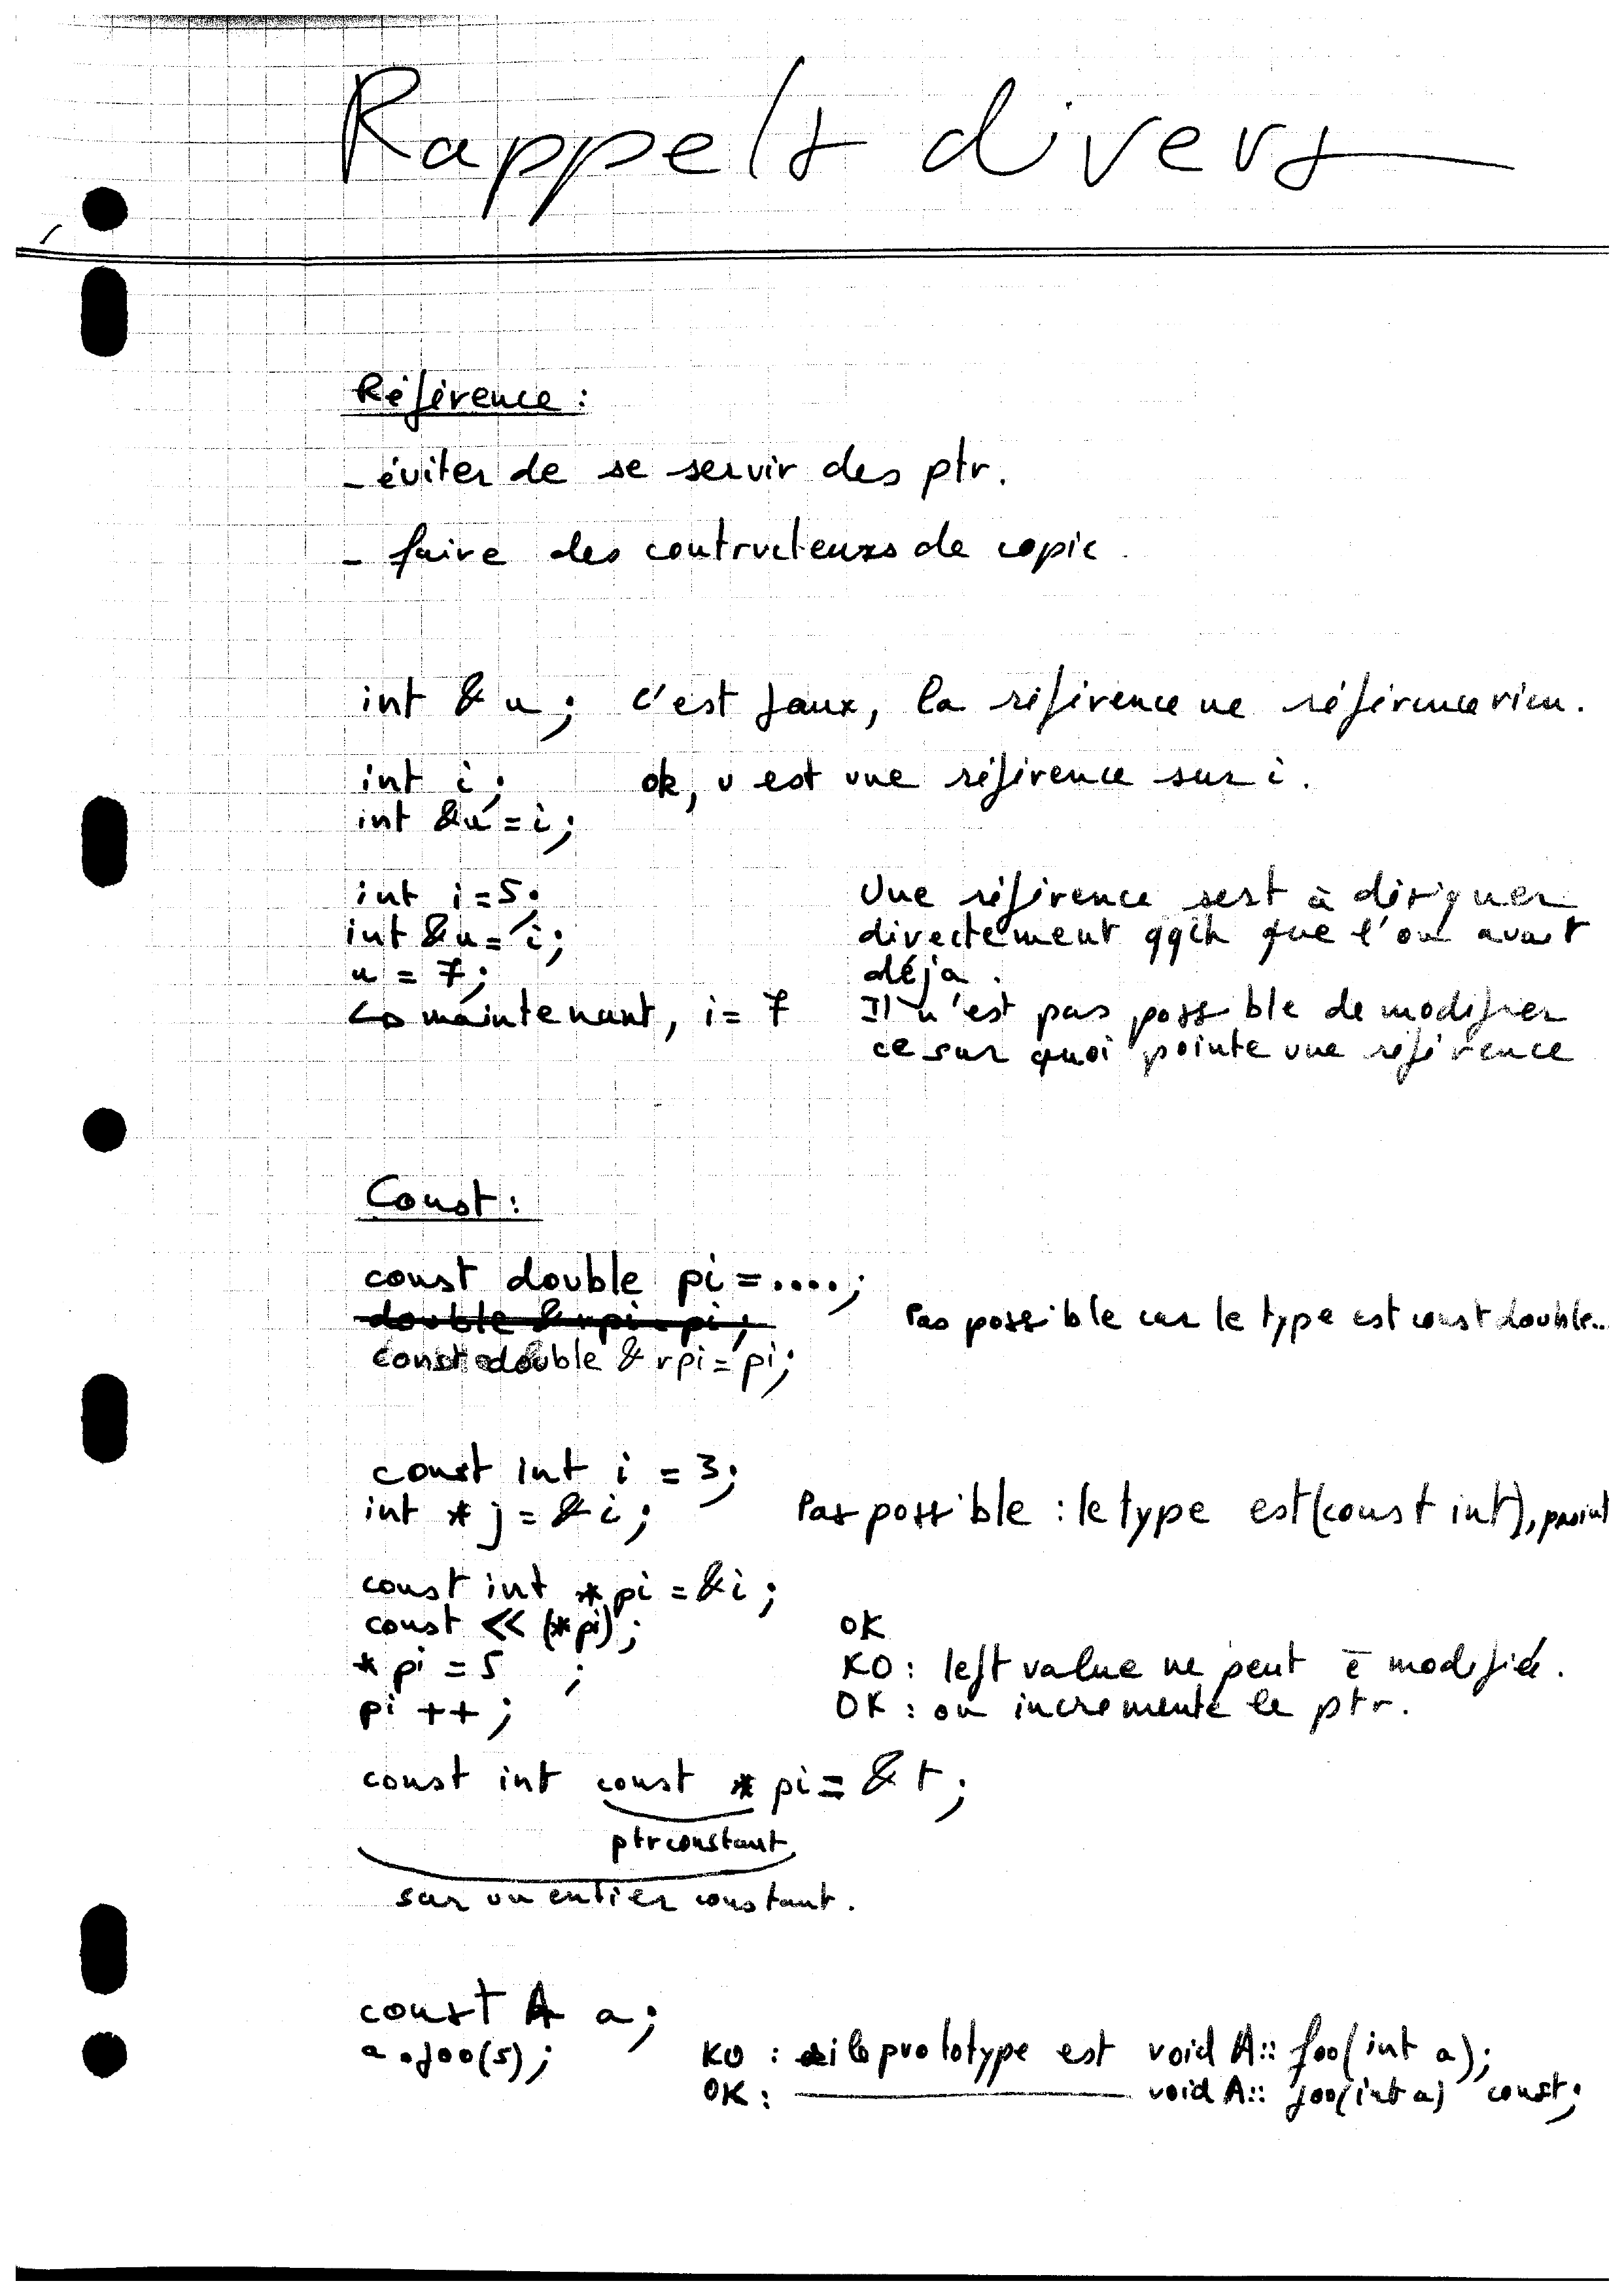 Rappels divers
Référence :
- éviter de se servir des ptr.
- faire des contructeurs de copie.
int & u ; c'est faux, la référence ne référence rien.
int i ; ok, u est une référence sur i.
int &u = i ;
int i = 5 ; Une référence sert à désigner
int &u = i ; directement qqch que l'on avait
u = 7 ; déjà.
↳ maintenant, i = 7 Il n'est pas possible de modifier
ce sur quoi pointe une référence
Const :
const double pi = .... ;
double & rpi = pi ; Pas possible car le type est const double..
const double & rpi = pi ;
const int i = 3 ;
int * j = &i ; Pas possible : le type est (const int),
const int * pi = &i ;
const << (*pi) ; OK
* pi = 5 ; KO : left value ne peut ê modifiée.
pi ++ ; OK : on incremente le ptr.
const int const * pi = & t ;
ptr constant
sur un entier constant.
const A a ;
a.foo(5) ; KO : si le prototype est void A:: foo(int a) ;
OK : ———— void A:: foo(int a) const ;